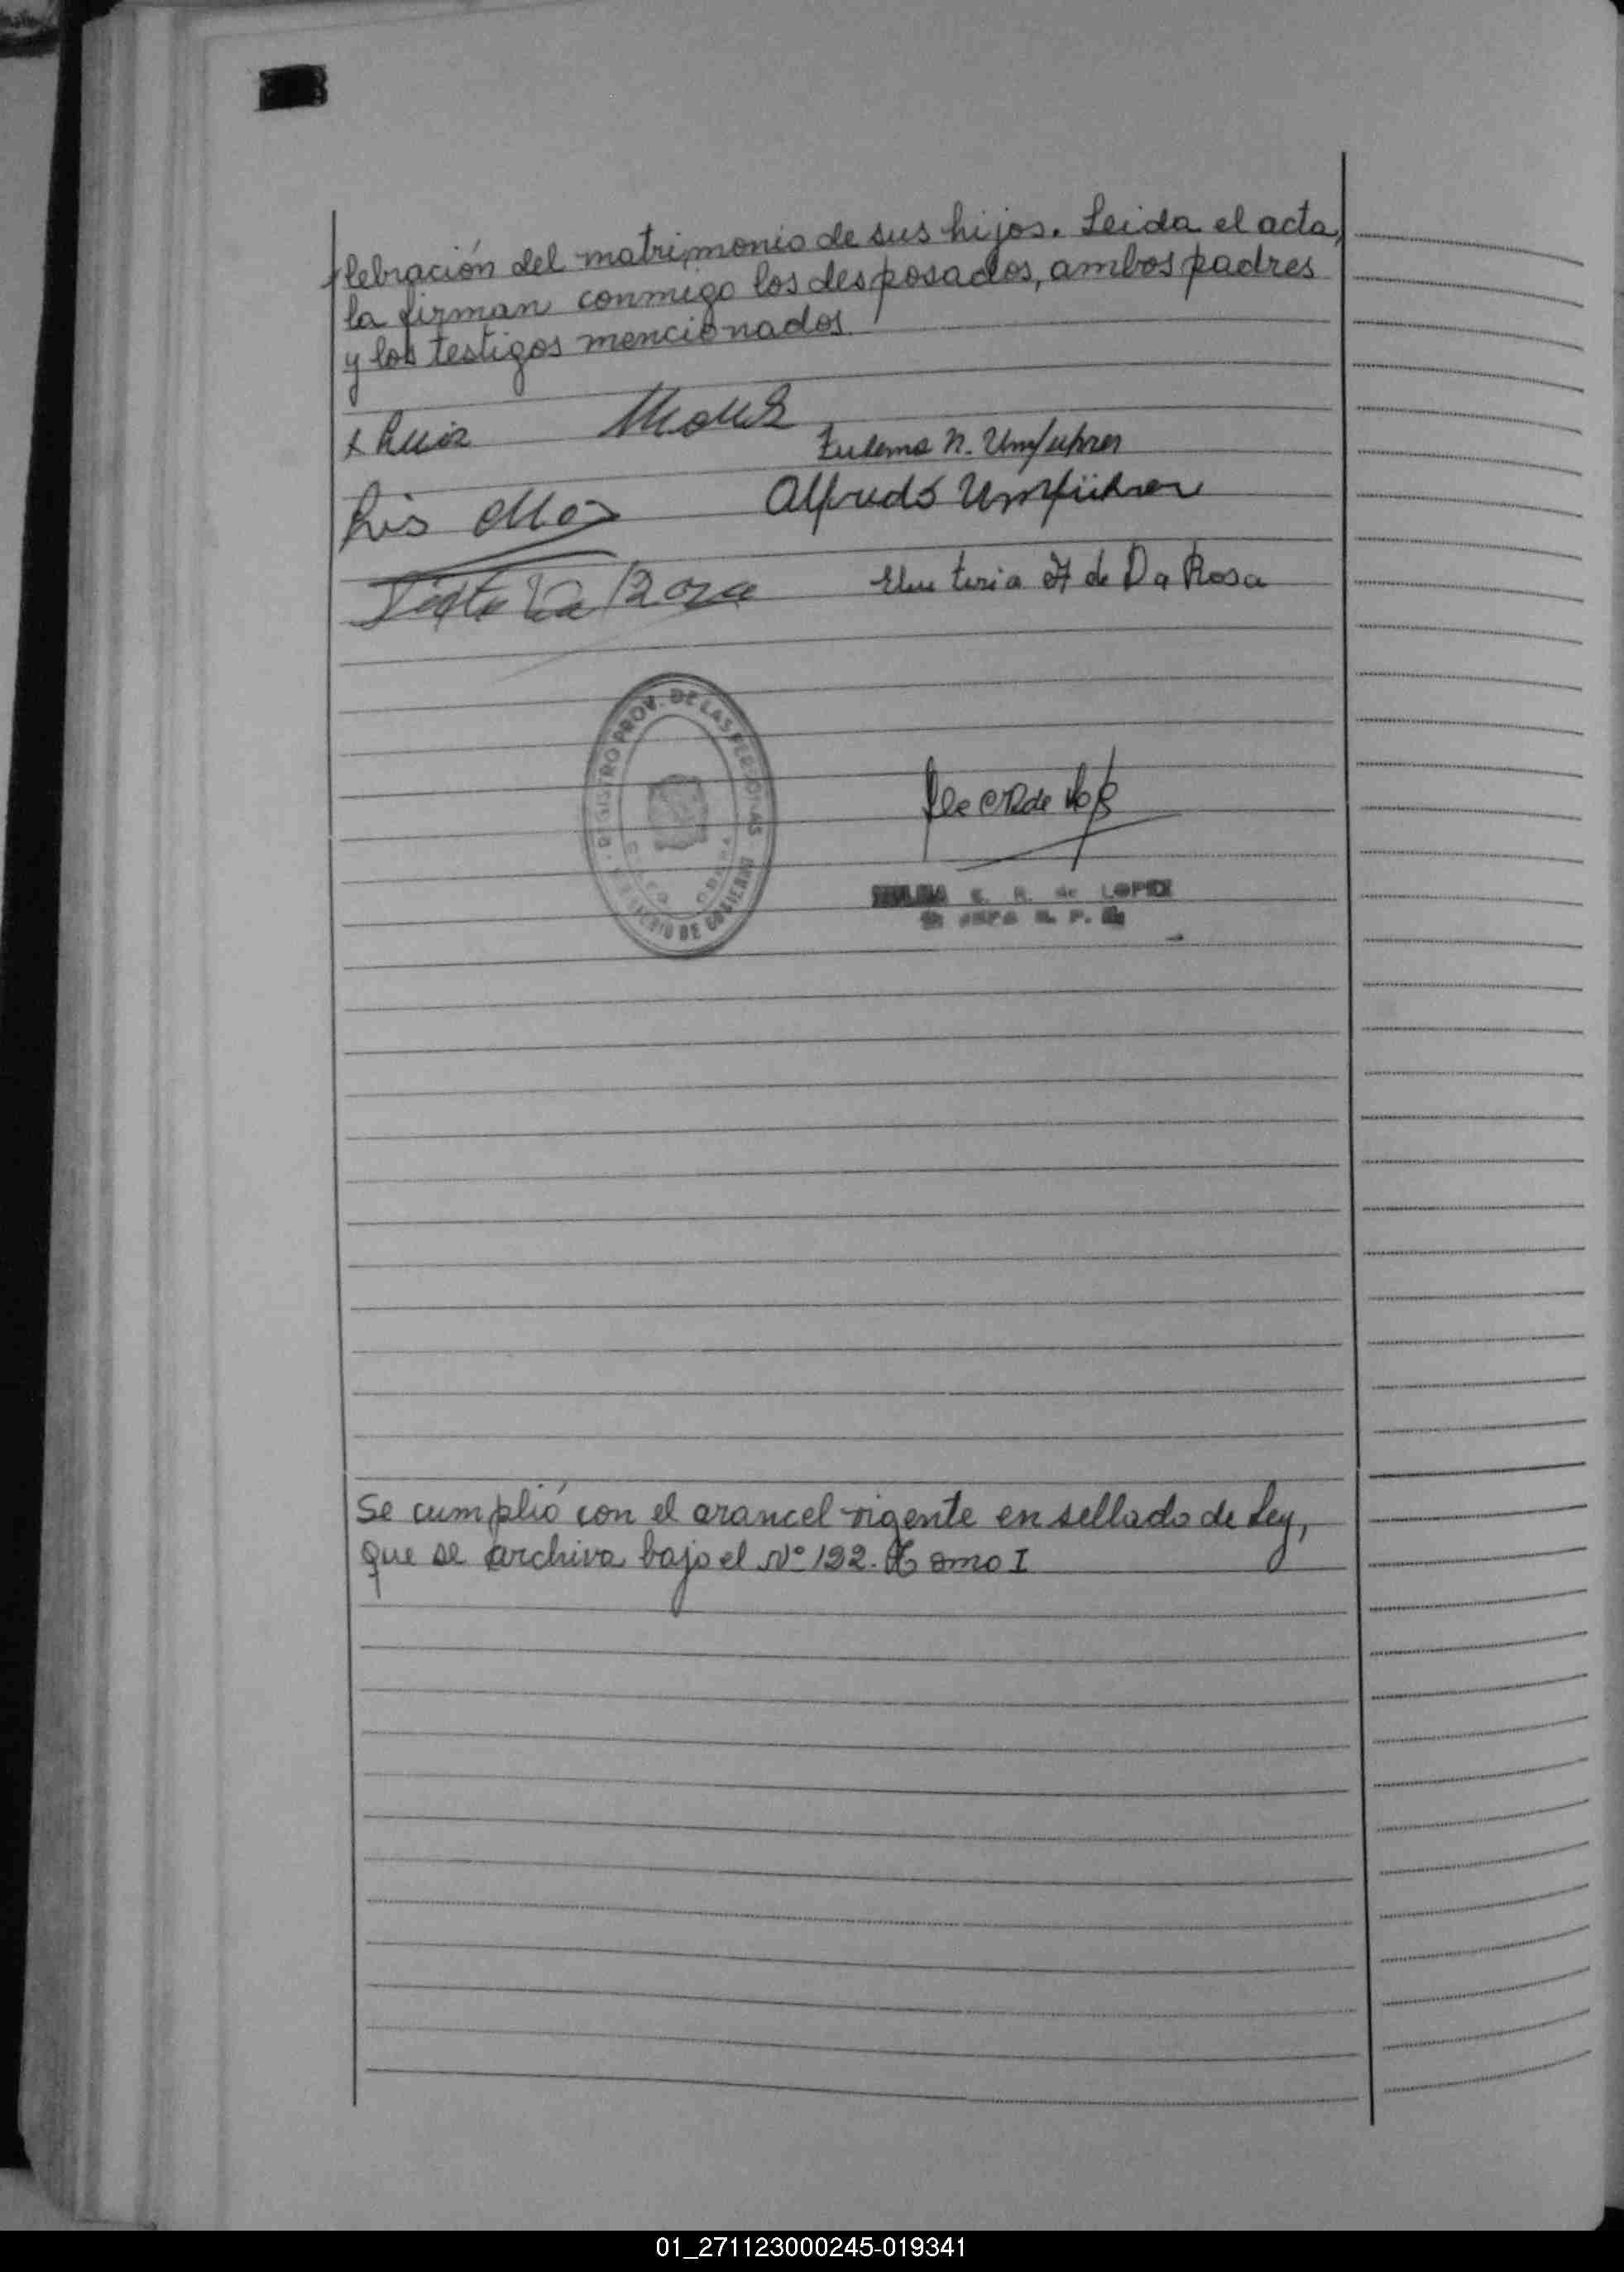 lebración del matrimonio de sus hijos. Leida el acta,
la firman conmigo los desposados, ambos padres
y los testigos mencionados
x Luis
Zulema N. Umfuhrer
Alfredo Umführer
Eleuteria F de Da Rosa
REGISTRO PROV. DE LAS PERSONAS
DE GOBIERNO
de LOPEZ
Se cumplió con el arancel vigente en sellado de Ley,
que se archiva bajo el Nº 122. Tomo I
01_271123000245-019341